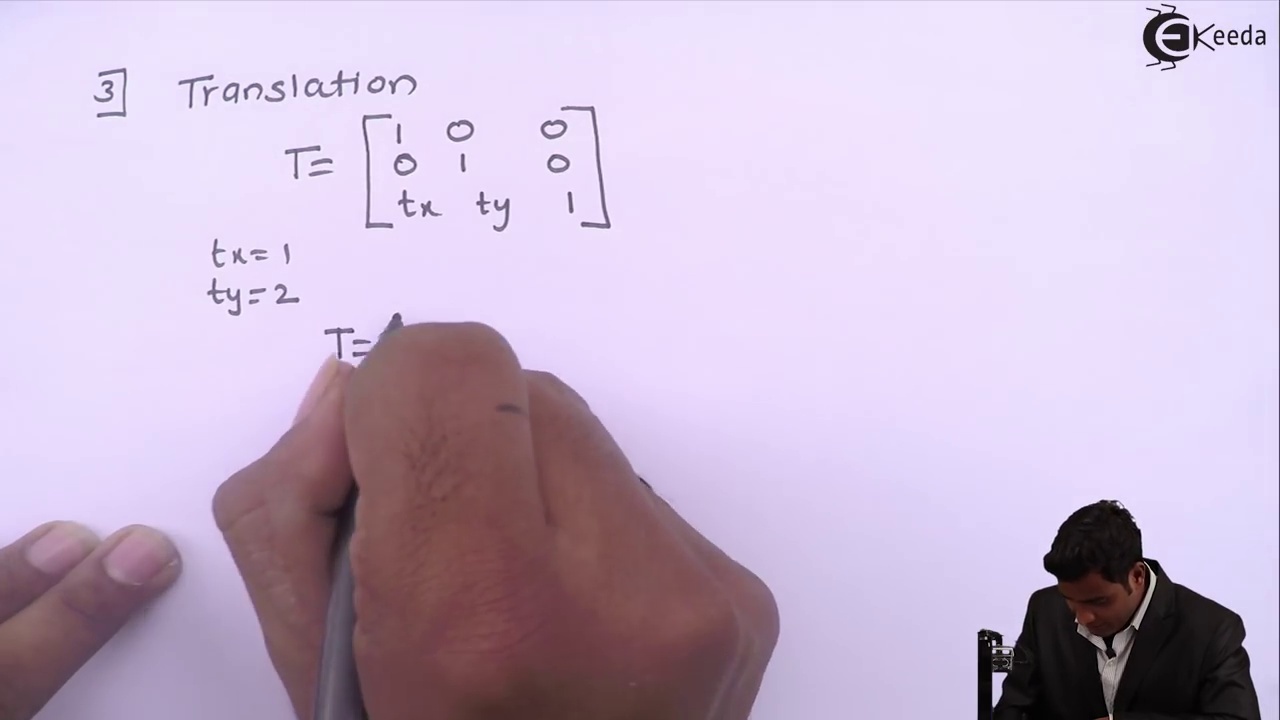 Keeda
3] Translation
T= [ 1 0 0
0 1 0
tx ty 1 ]
tx=1
ty=2
T=